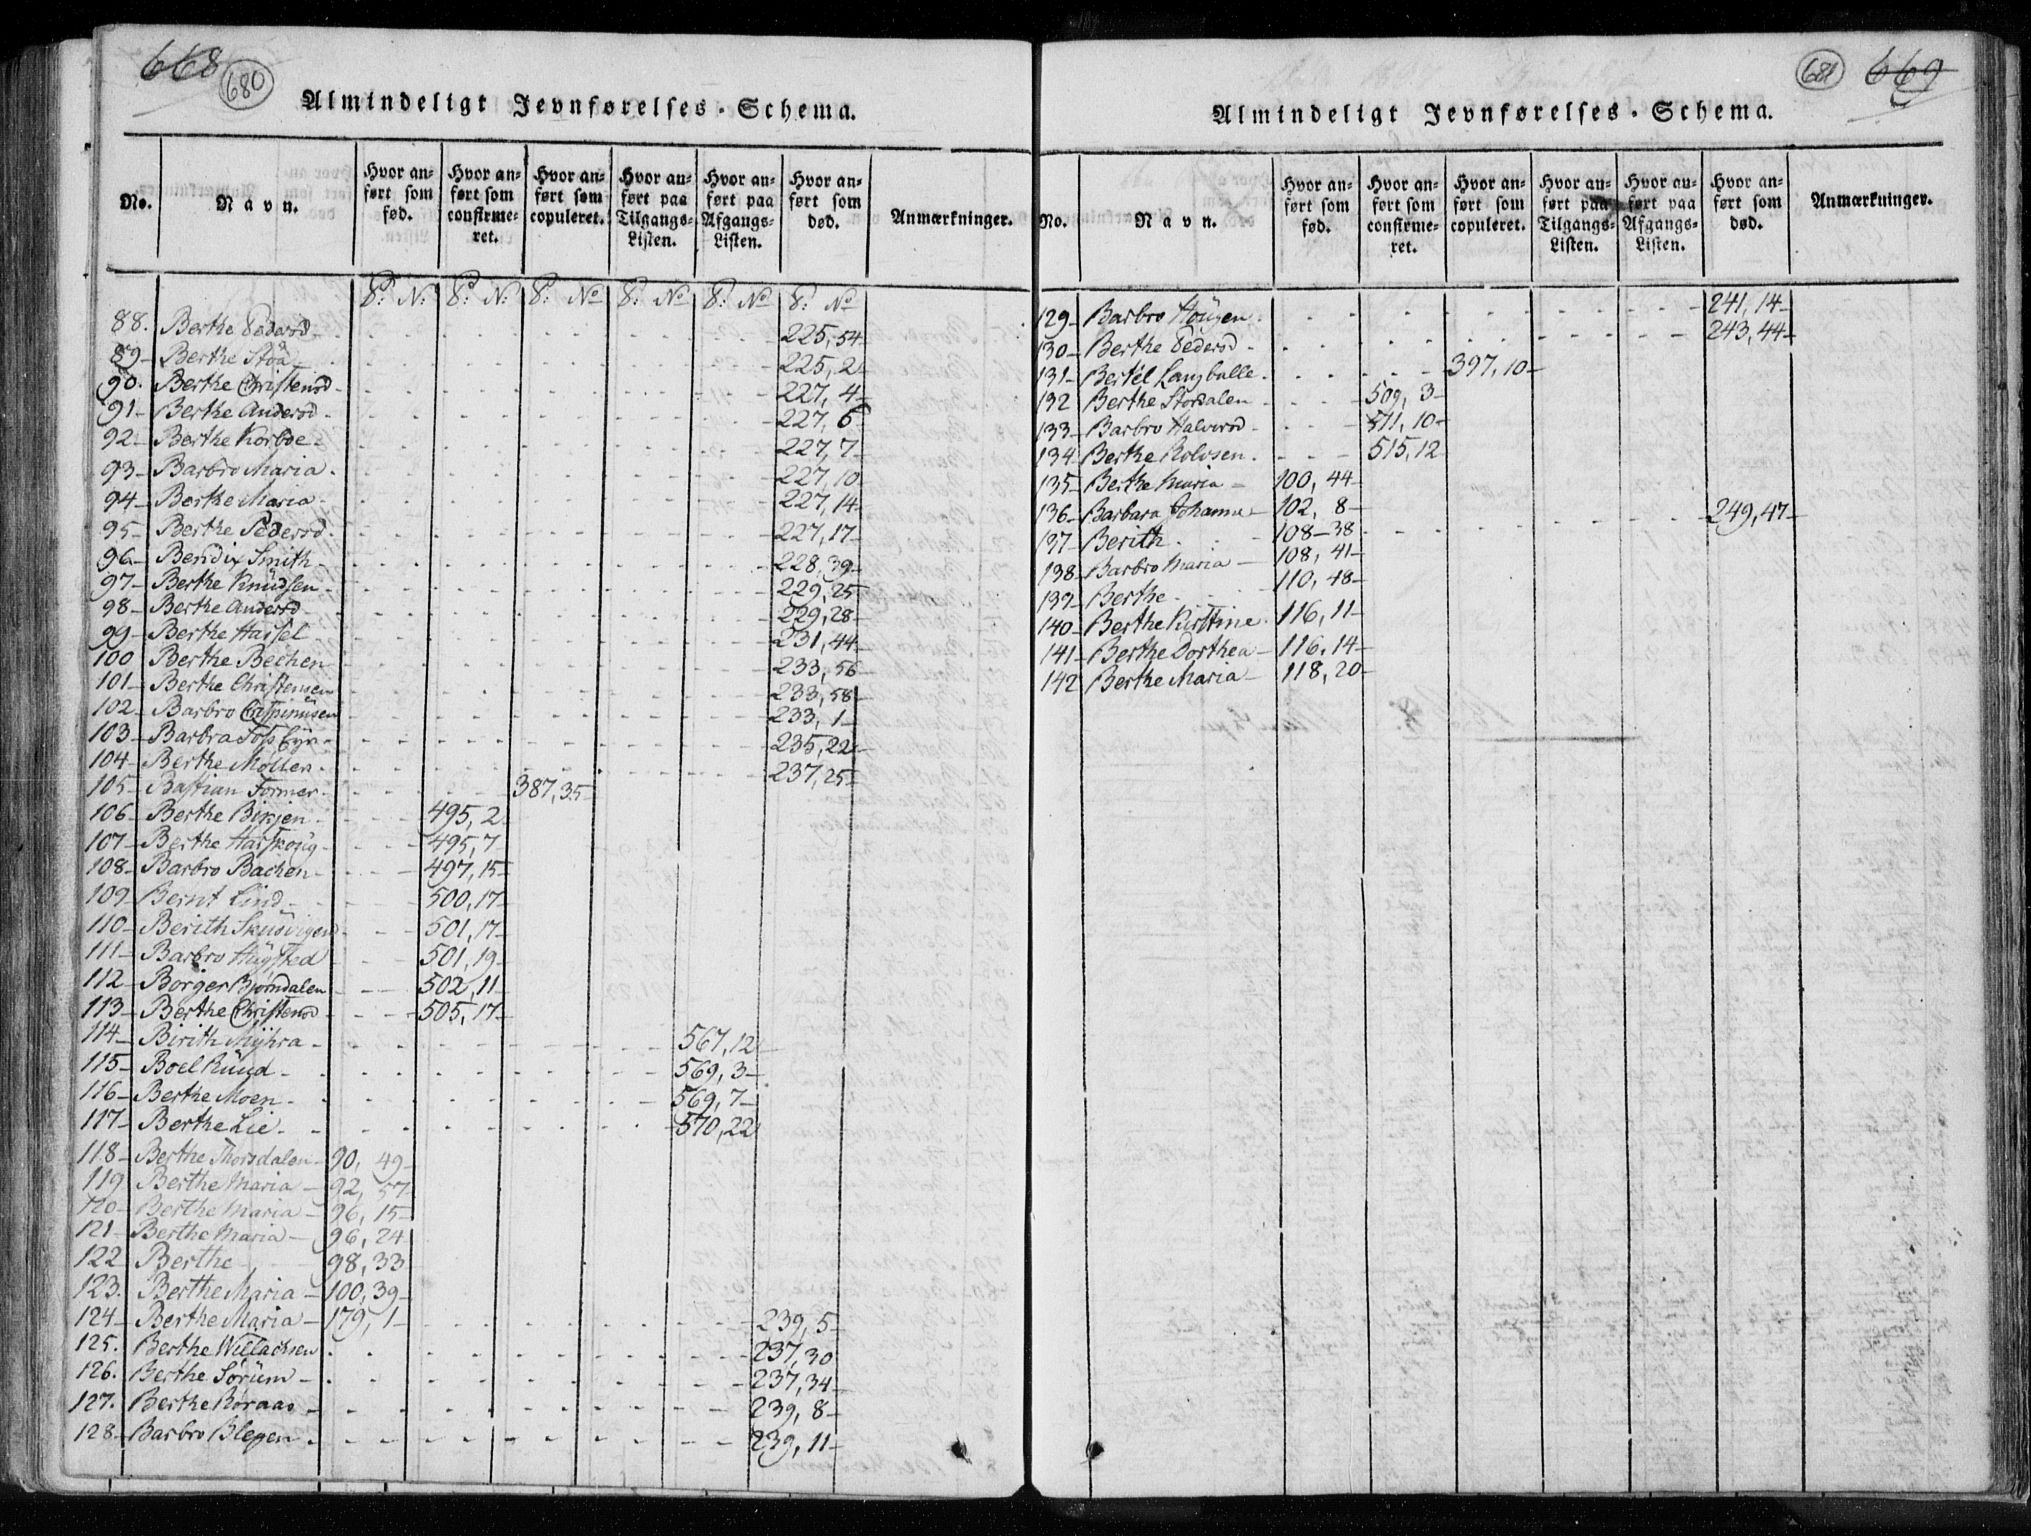 668
680
Almindeligt Jevnførelses-Schema.
No. Navn. Hvor anført som fød. Hvor anført som confirmeret. Hvor anført som copuleret. Hvor anført paa Tilgangs-Listen. Hvor anført paa Afgangs-Listen. Hvor anført som død. Anmærkninger.
P. N. P. N. P. No P. No P. No P. No
88. Berthe Pedersd. 225, 54
89 Berthe Stöa 225, 2
90. Berthe Christensd 227, 4
91 Berthe Andersd. 227, 6
92. Berthe Korboe. 227, 7
93 Barbro Maria. 227, 10
94 Berthe Maria 227, 14
95 Berthe Pedersd. 227, 17
96 Bendix Smith 228, 39
97 Berthe Knüdsen 229, 25
98 Berthe Andersd 229, 28
99 Berthe Hassel 231, 44
100 Berthe Bechen 233, 56
101 Berthe Christensen 233, 58
102 Barbro Crispinusen 233, 1
103 Barbra 235, 22
104 Berthe Möllen. 237, 25
105 Bastian Former 387, 35
106 Berthe Birjen 495, 2
107 Berthe 495, 7
108 Barbro Bachen 497, 15
109 Bernt Lind 500, 17
110 Berith 501, 17
111 Barbro Hügsted 501, 19
112 Börger Bjørndalen 502, 11
113 Berthe Christensd 505, 17
114 Birith Myhra 567, 12
115 Boel Rüüd 569, 3
116 Berthe Moen 569, 7
117 Berthe Lie 570, 22
118 Berthe Thorsdalen 90, 49
119 Berthe Maria 92, 57
120 Berthe Maria 96, 15
121 Berthe Maria 96, 24
122 Berthe 98, 33
123. Berthe Maria 100, 39
124 Berthe Maria 179, 1 239, 5
125. Berthe Willachsen 237, 30
126. Berthe Sørüm 237, 34
127. Berthe Røraas 239, 8
128 Barbro Blegen 239, 11
681
669
Almindeligt Jevnførelses-Schema.
No. Navn. Hvor anført som fød. Hvor anført som confirmeret. Hvor anført som copuleret. Hvor anført paa Tilgangs-Listen. Hvor anført paa Afgangs-Listen. Hvor anført som død. Anmærkninger.
129 Barbro Hougen 241, 14
130 Berthe Pedersd 243, 44
131 Bertel Langballe 397, 10
132 Berthe Stordalen 509, 3
133 Barbro Halvorsd 511, 10
134 Berthe Rolvsen 515, 12
135 Berthe Maria 100, 44
136 Barbara Johanne 102, 8
137 Berith 108-38 249, 47
138 Barbro Maria 108, 41
139 Berthe 110, 48
140 Berthe Kirstine 116, 11
141 Berthe Dorthea 116, 14
142 Berthe Maria 118, 20